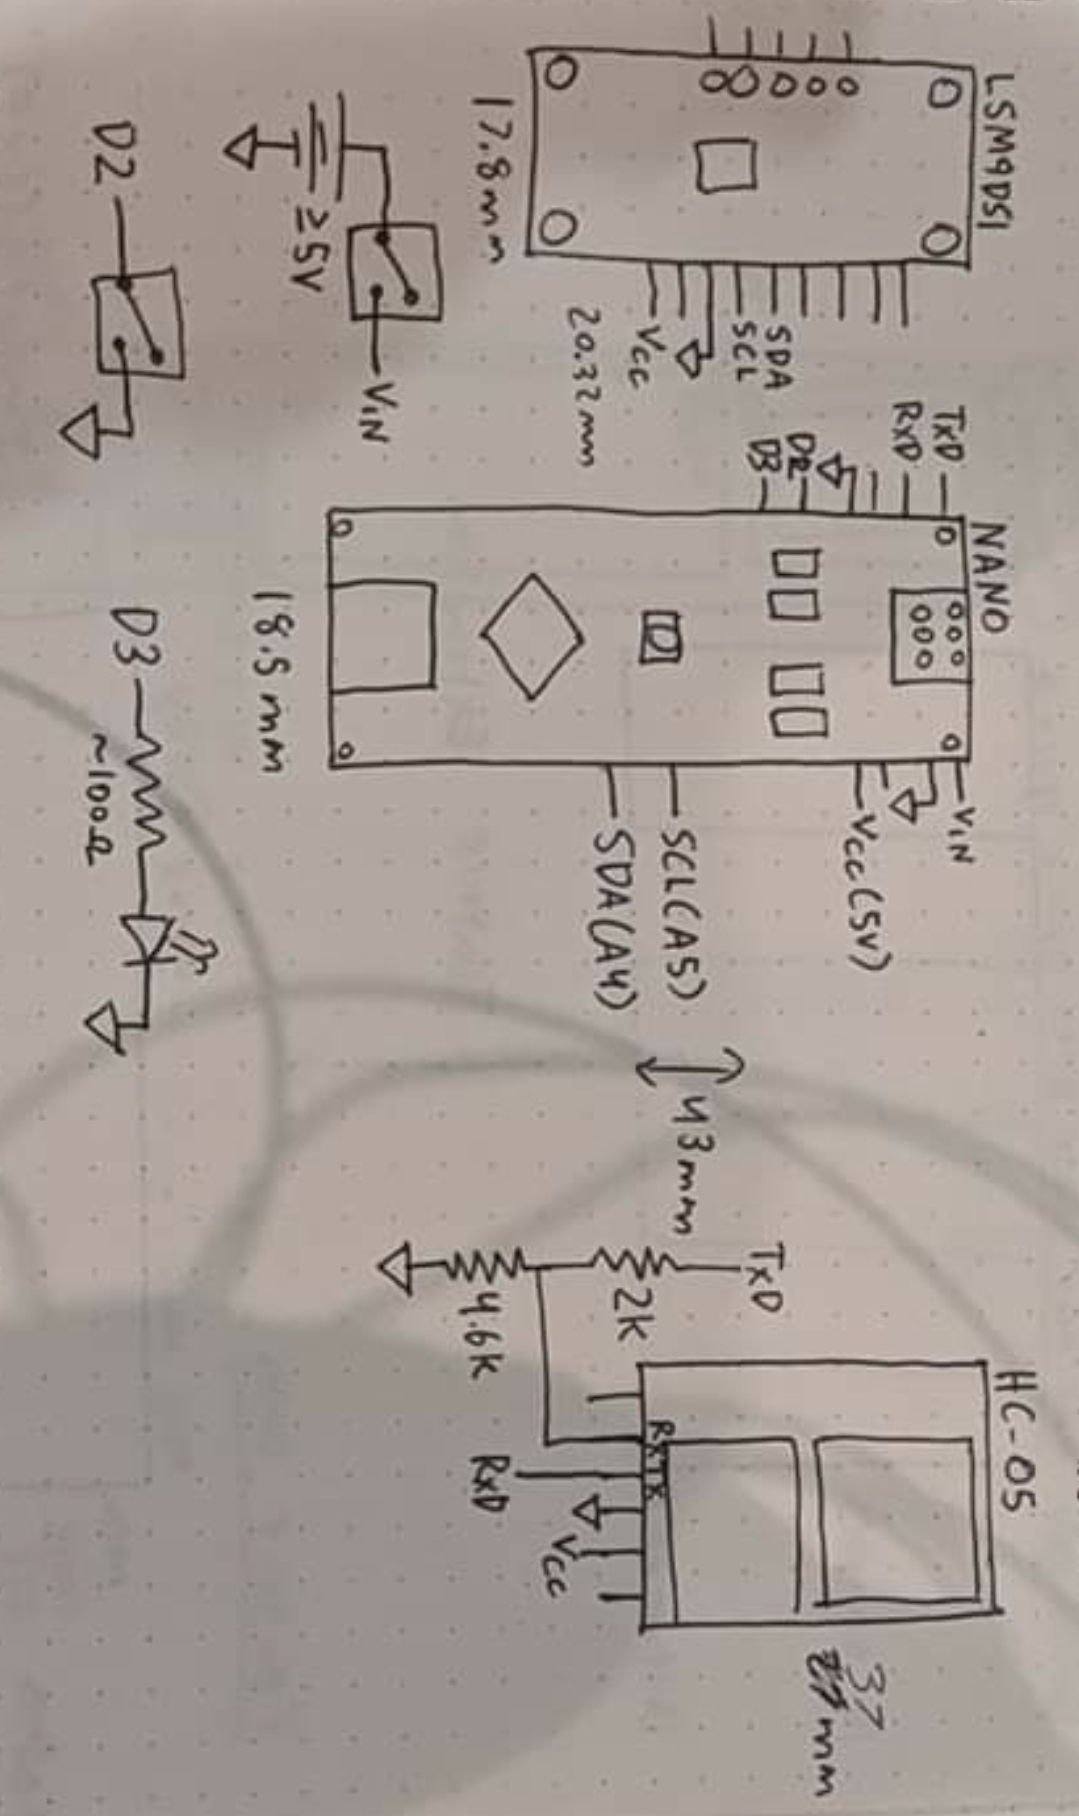 LSM9DS1
SDA
SCL
Vcc
20.32mm
17.8mm
NANO
TxD
RxD
D2
D3
VIN
Vcc(5V)
SCL(A5)
SDA(A4)
43mm
18.5mm
HC-05
37
mm
RX TX
Vcc
RxD
TxD
2K
4.6K
VIN
≥5V
D2
D3
~100Ω